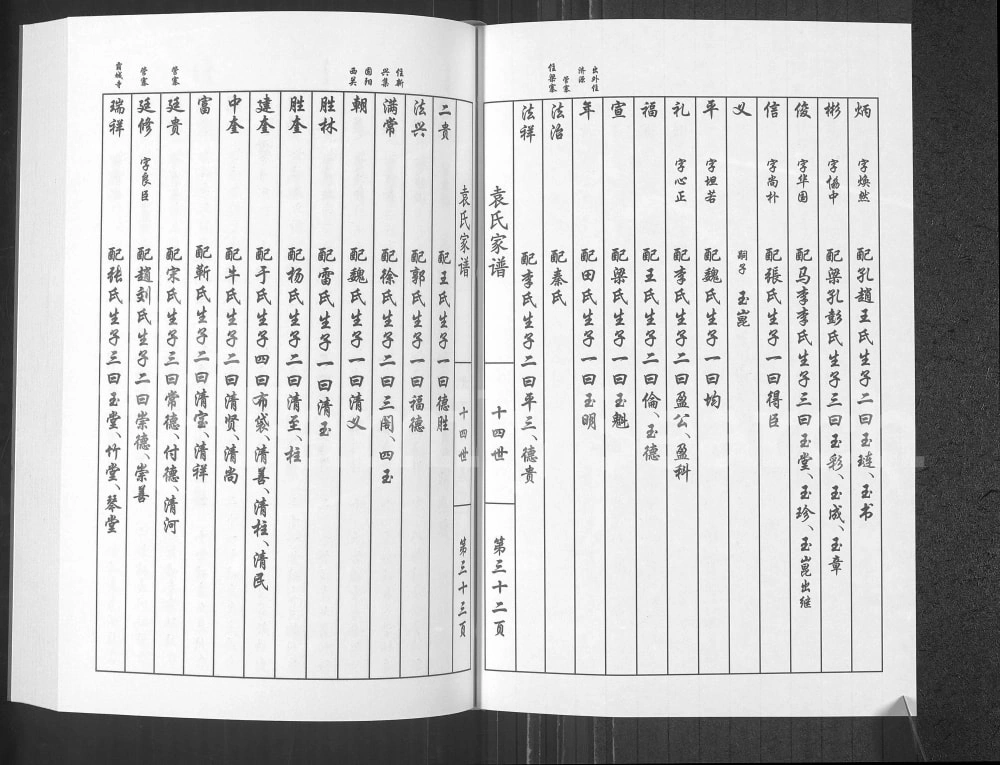 炳 字焕然 配孔趙王氏生子二曰玉琏、玉书
彬 字偈中 配梁孔彭氏生子三曰玉彩、玉成、玉章
俊 字华国 配马李李氏生子三曰玉堂、玉珍、玉崑出继
信 字尚朴 配張氏生子一曰得臣
义 嗣子 玉崑
平 字坦若 配魏氏生子一曰均
礼 字心正 配李氏生子二曰盈公、盈科
福 配王氏生子二曰倫、玉德
宣 配梁氏生子一曰玉魁
出外住
济源
年 配田氏生子一曰玉明
管寨
住梁寨
法治 配秦氏
法祥 配李氏生子二曰平三、德贵
袁氏家谱 十四世 第三十二页
袁氏家谱 十四世 第三十三页
二贵 配王氏生子一曰德胜
法兴 配郭氏生子一曰福德
住新
兴集
满常 配徐氏生子二曰三阁、四玉
固阳
西吴
朝 配魏氏生子一曰清义
胜林 配雷氏生子一曰清玉
胜奎 配杨氏生子二曰清至、柱
建奎 配于氏生子四曰布袋、清善、清柱、清民
中奎 配牛氏生子二曰清贤、清尚
富 配靳氏生子二曰清宝、清祥
管寨
廷贵 配宋氏生子三曰常德、付德、清河
管寨
廷修 字良臣 配趙刘氏生子二曰崇德、崇善
瑞祥 配张氏生子三曰玉堂、竹堂、琴堂